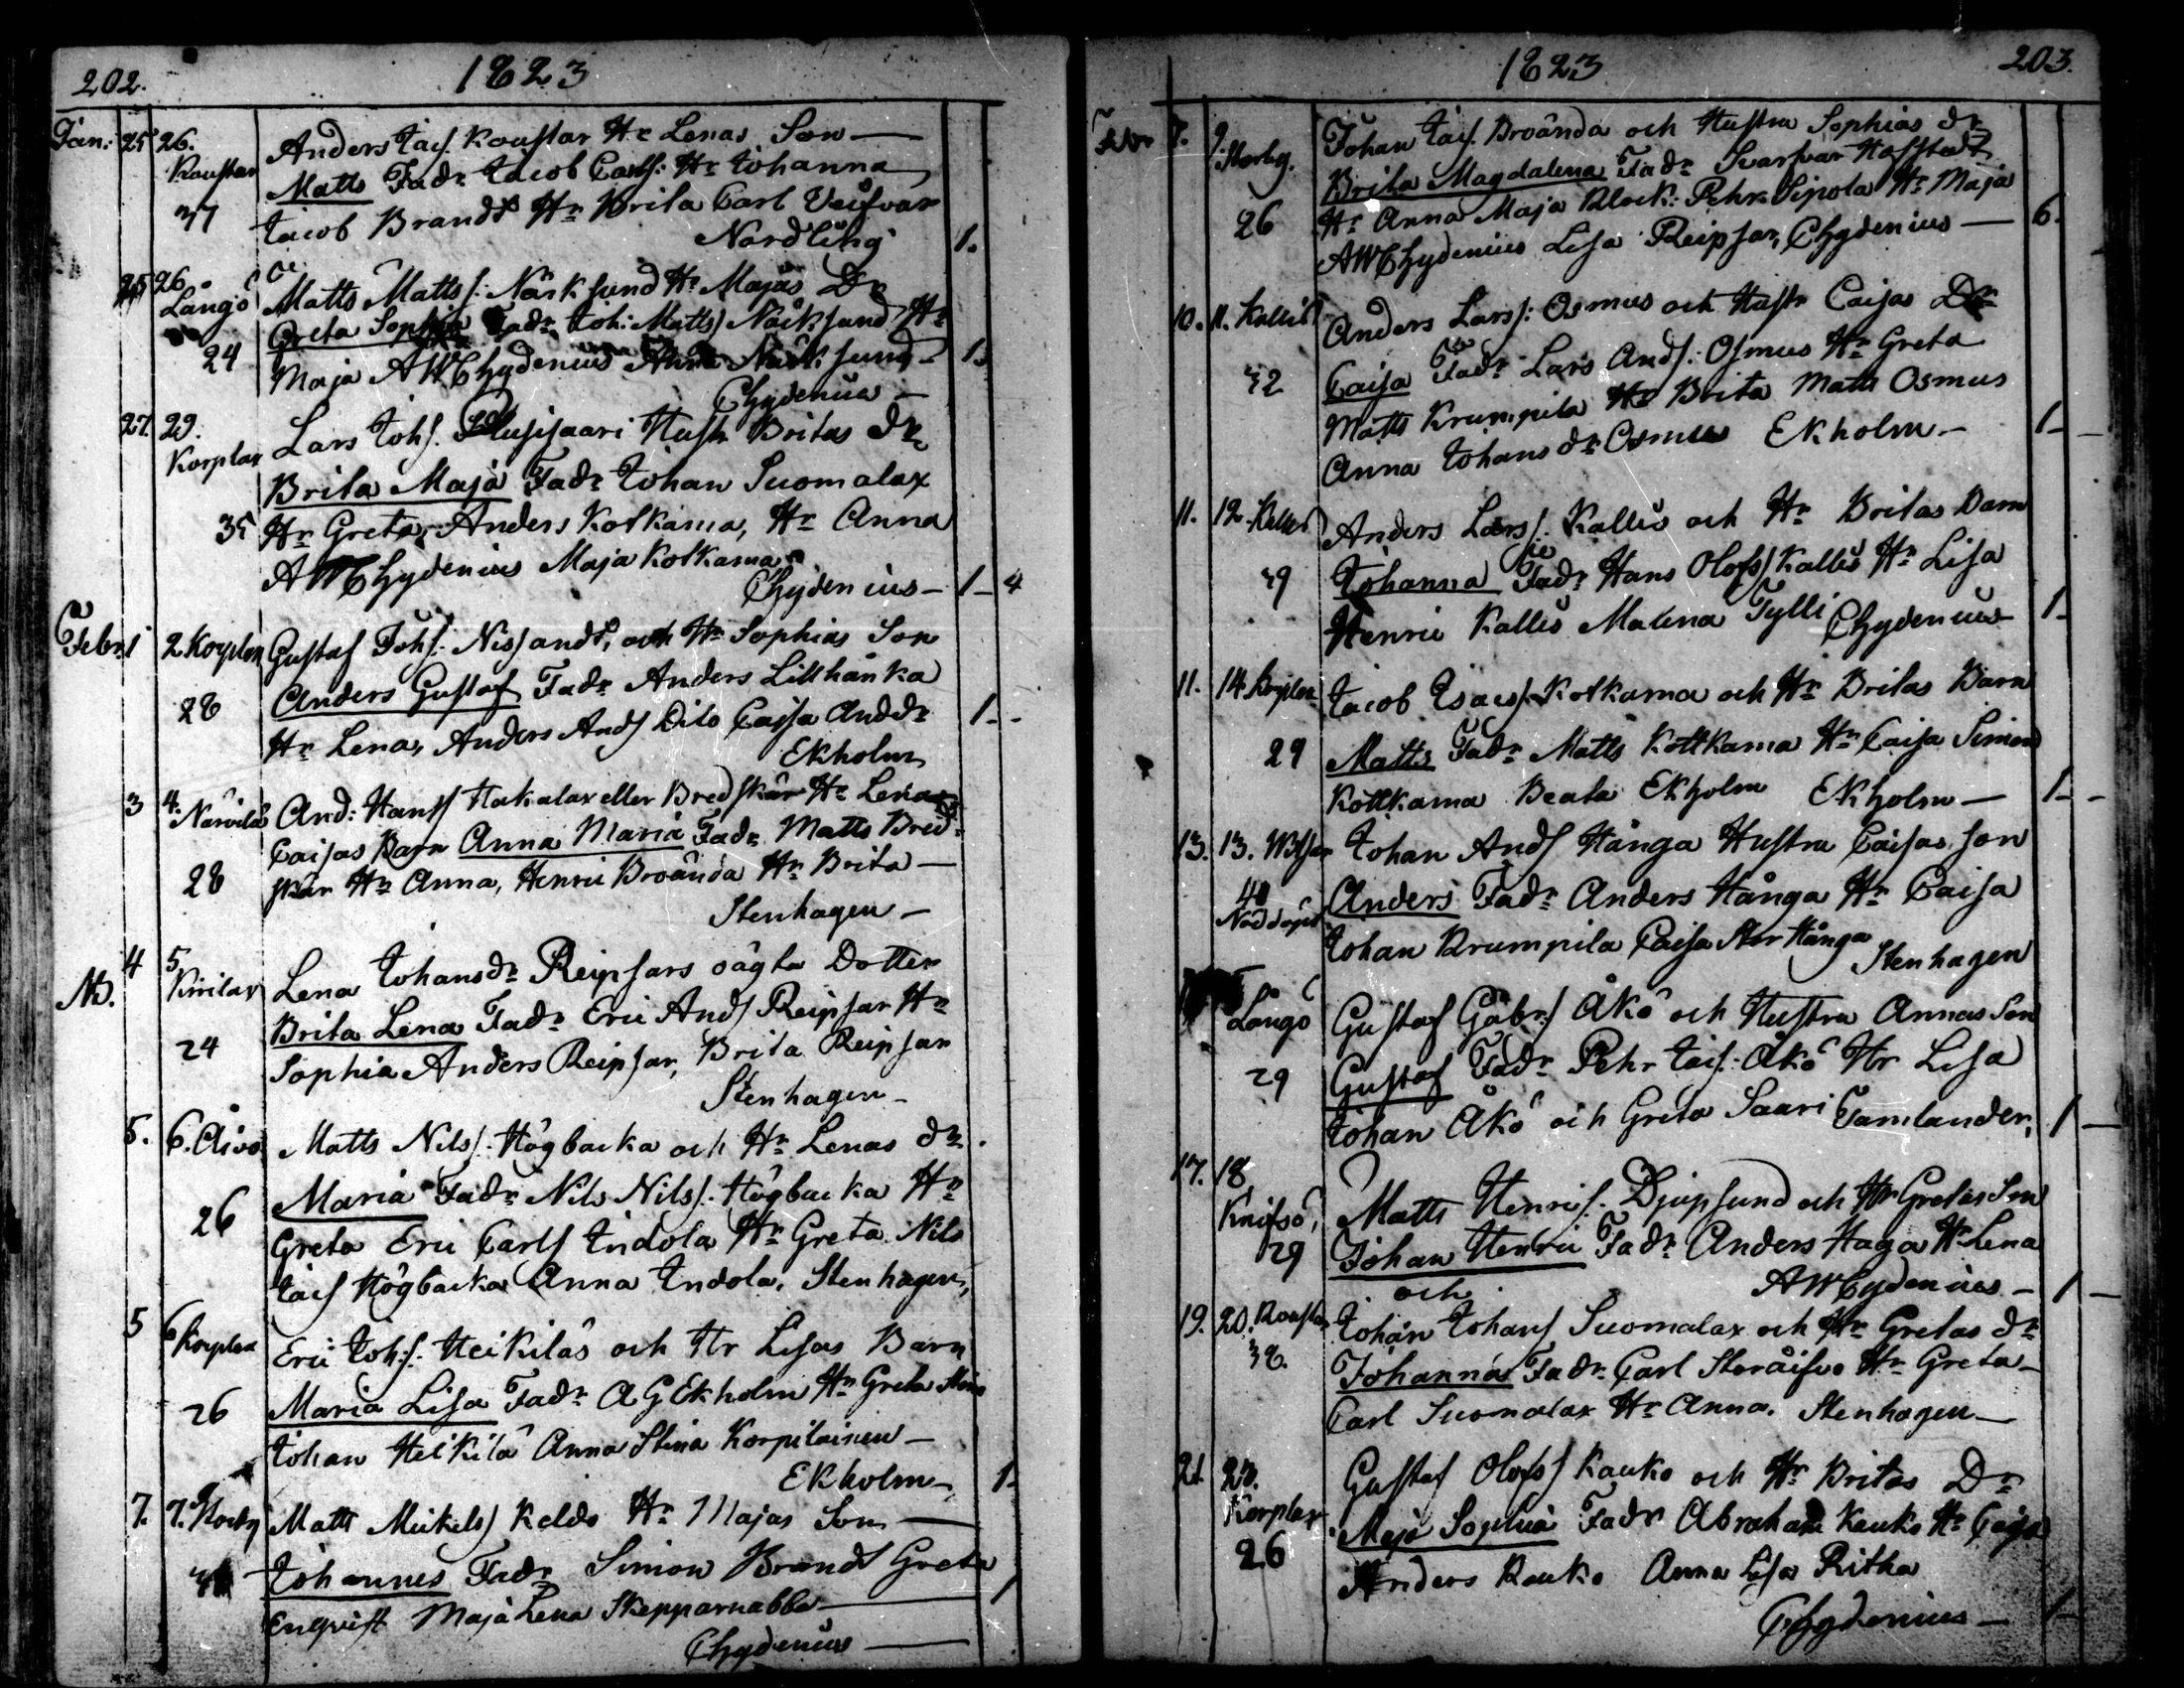 202. 1823
Jan: 25 26. Anders Jacs. Koustar Hr Lenas Son
Koustar Matts Fadr Jacob Carls: Hr Johanna
37 Jacob Brandt Hr Brita Carl
Nordling 1.
25 26 Matts Matts: Näsksund Hr Majas Dr
Långö Greta Sophia Fadr Joh: Matts Näsksund Hr
24 Maja AWChydenius Näsksund 1.
Chydenius
27. 29. Lars Johs. Hustr Britas dr
Korplax Brita Maja Fadr Johan Suomalax
35 Hr Greta, Anders Kotkama, Hr Anna
AWChydenius Maja Kotkama
Chydenius 1 4
Febr: 1 2 Korplax Gustaf Johs: Nissandt, och Hr Sophias Son
28 Anders Gustaf Fadr Anders Lillhånka
Hr Lena, Anders Ands Dito Caisa Anddr 1.
Ekholm
3 4. And: Hans Hakalax eller Bredskär Hr Lena
Närvilä Caisas Barn Anna Maria Fadr Matts Bred-
28 skär Hr Anna, Henric Broända Hr Brita
Stenhagen
4 5 Lena Johansdr Reipsars oägta Dotter
Nb. Kivilax Brita Lena Fadr Eric Ands Reipsar Hr
24 Sophia Anders Reipsar, Brita Reipsar
Stenhagen
5. 6. Åivo Matts Nils: Högbacka och Hr Lenas dr
26 Maria Fadr Nils Nils: Högbacka Hr
Greta Eric Carls Indola Hr Greta Nils
Jacs Högbacka Anna Indola. Stenhagen
5 6 Korplax Eric Joh:s: Heikilä och Hr Lisas Barn
26 Maria Lisa Fadr A G Ekholm Hr Greta Stina
Johan Heikilä Anna Stina Korpilainen
Ekholm 1
7. 7. Storby Matts Mickels Keldo Hr Majas Son
Johannes Fadr Simon Brandt Greta
Enqvist Maja Lena Skepparnabba 1
Chydenius
1823 203.
Febr 7. 9. Storby. Johan Jacs. Broända och Hustru Sophias dr
Brita Magdalena Fadr Svarfvar Hofstedt
26 Hr Anna Maja Block: Pehr Sipola Hr Maja 6.
AWChydenius Lisa Reipsar, Chydenius
10. 11. Kallis Anders Lars: Osmus och Hustr Caisas Dr
32 Caisa Fadr Lars Ands: Osmus Hr Greta
Matts Krumpila Hr Brita Matts Osmus
Anna Johansdr Osmus Ekholm 1
11. 12. Kallis Anders Lars: Kallis och Hr Britas Barn
29 Johanna Fadr Hans Olofs Kallis Hr Lisa
Henric Kallis Malena Tylli Chydenius 1
11. 14. Korplax Jacob Isacs. Kotkama och Hr Britas Barn
29 Matts Fadr Matts Kottkama Hr Caisa Simon
Kottkama Beata Ekholm Ekholm 1
13. 13. Johan Ands Hånga Hustru Caisas son
40 Anders Fadr Anders Hånga Hr Caisa
Nöddöpt Johan Krumpila Caisa Stor Hånga
Stenhagen
Långö Gustaf Gabrs Åkö och Hustru Annas Son
29 Gustaf Fadr Pehr Jacs: Åkö Hr Lisa
Johan Åkö och Greta Saari Tamlander, 1
17. 18 Matts Henrics. Djupsund och Hr Gretas Son
Knifsö, Johan Henric Fadr Anders Haga Hr Lena
29 och AWChydenius 1
19. 20. Koustar Johan Johans Suomalax och Hr Gretas dr
38. Johanna Fadr Carl Storåifvo Hr Greta
Carl Suomalax Hr Anna. Stenhagen
21. 23. Gustaf Olofs Kauko och Hr Britas Dr
Korplax Maja Sophia Fadr Abraham Kauko Hr Caisa
26 Anders Kauko Anna Lisa Ritka
Chydenius 1